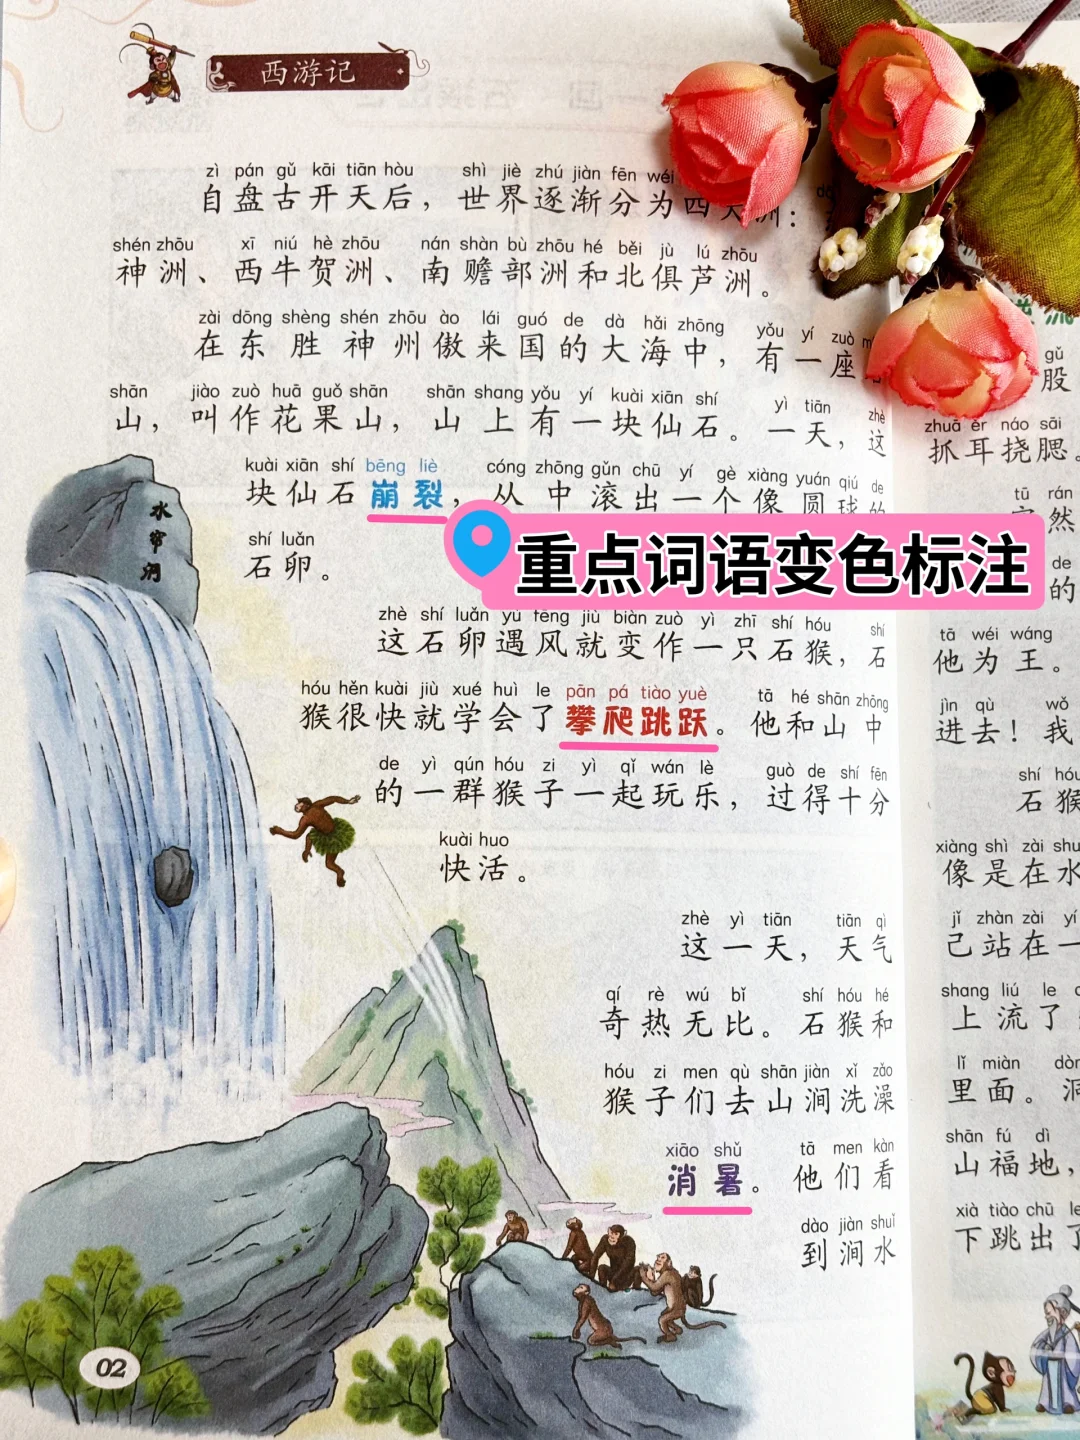 西游记
zì pán gǔ kāi tiān hòu shì jiè zhú jiàn fēn wéi
自盘古开天后，世界逐渐分为四大洲：
shén zhōu xī niú hè zhōu nán shàn bù zhōu hé běi jù lú zhōu
神洲、西牛贺洲、南赡部洲和北俱芦洲。
zài dōng shèng shén zhōu ào lái guó de dà hǎi zhōng yǒu yí zuò
在东胜神州傲来国的大海中，有一座
shān jiào zuò huā guǒ shān shān shang yǒu yí kuài xiān shí yì tiān zhè
山，叫作花果山，山上有一块仙石。一天，这
kuài xiān shí bēng liè cóng zhōng gǔn chū yí gè xiàng yuán qiú de
块仙石崩裂，从中滚出一个像圆球的
shí luǎn
石卵。
重点词语变色标注
zhè shí luǎn yù fēng jiù biàn zuò yì zhī shí hóu shí
这石卵遇风就变作一只石猴，石
hóu hěn kuài jiù xué huì le pān pá tiào yuè tā hé shān zhōng
猴很快就学会了攀爬跳跃。他和山中
de yì qún hóu zi yì qǐ wán lè guò de shí fēn
的一群猴子一起玩乐，过得十分
kuài huo
快活。
zhè yì tiān tiān qì
这一天，天气
qí rè wú bǐ shí hóu hé
奇热无比。石猴和
hóu zi men qù shān jiàn xǐ zǎo
猴子们去山涧洗澡
xiāo shǔ tā men kàn
消暑。他们看
dào jiàn shuǐ
到涧水
水帘洞
02
gǔ
股
zhuā ěr náo sāi
抓耳挠腮。
tū rán
然
de
的
tā wéi wáng
他为王。
jìn qù wǒ
进去！我
shí hóu
石猴
xiàng shì zài shuǐ
像是在水
jǐ zhàn zài yí
己站在一
shang liú le
上流了
lǐ miàn dòng
里面。洞
shān fú dì
山福地，
xià tiào chū le
下跳出了